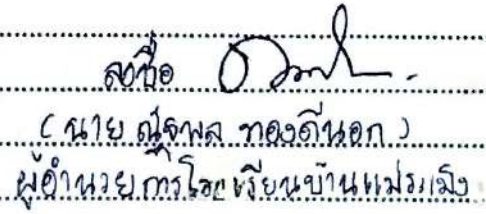 ลงชื่อ
(นายณัฐพล ทองดีนอก)
ผู้อำนวยการโรงเรียนบ้านแม่ระเมิง